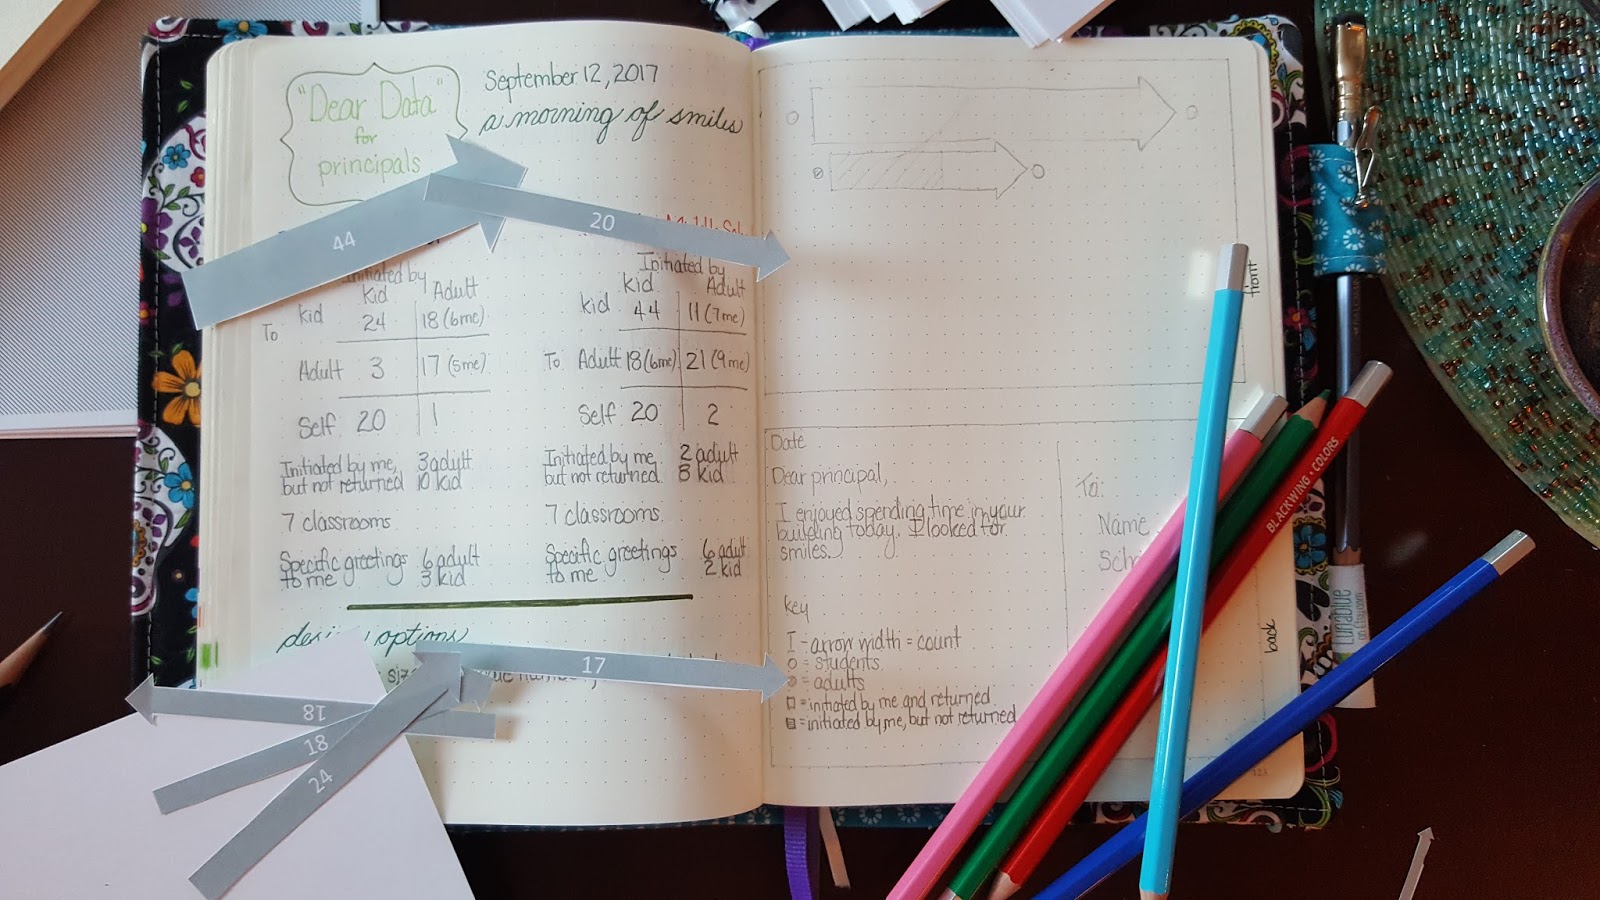 "Dear Data"
for
principals
September 12, 2017
a morning of smiles
44
20
Initiated by
kid Adult
kid 24 18 (6me)
To
Adult 3 17 (5me)
Self 20 1
Initiated by me, 3 adult
but not returned 10 kid
7 classrooms
Specific greetings 6 adult
to me 3 kid
Initiated by
kid Adult
kid 44 11 (7me)
To Adult 18 (6me) 21 (9me)
Self 20 2
Initiated by me, 2 adult
but not returned kid
7 classrooms
Specific greetings 6 adult
to me 2 kid
design options
17
18
18
24
front
Date
Dear principal,
I enjoyed spending time in your
building today. I looked for
smiles.
To:
Name
key
I - arrow width = count
= students
= adults
= initiated by me and returned
= initiated by me, but not returned
back
123
BLACKWING COLORS